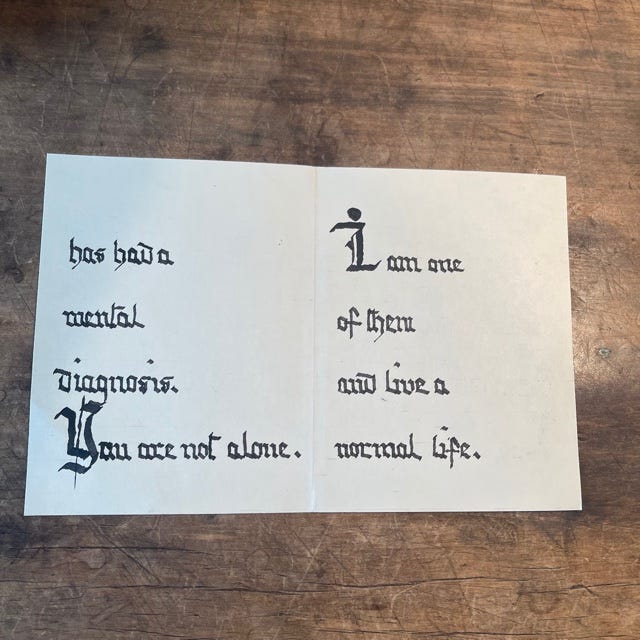 has had a
mental
Diagnosis.
You are not alone.
I am one
of them
and live a
normal life.